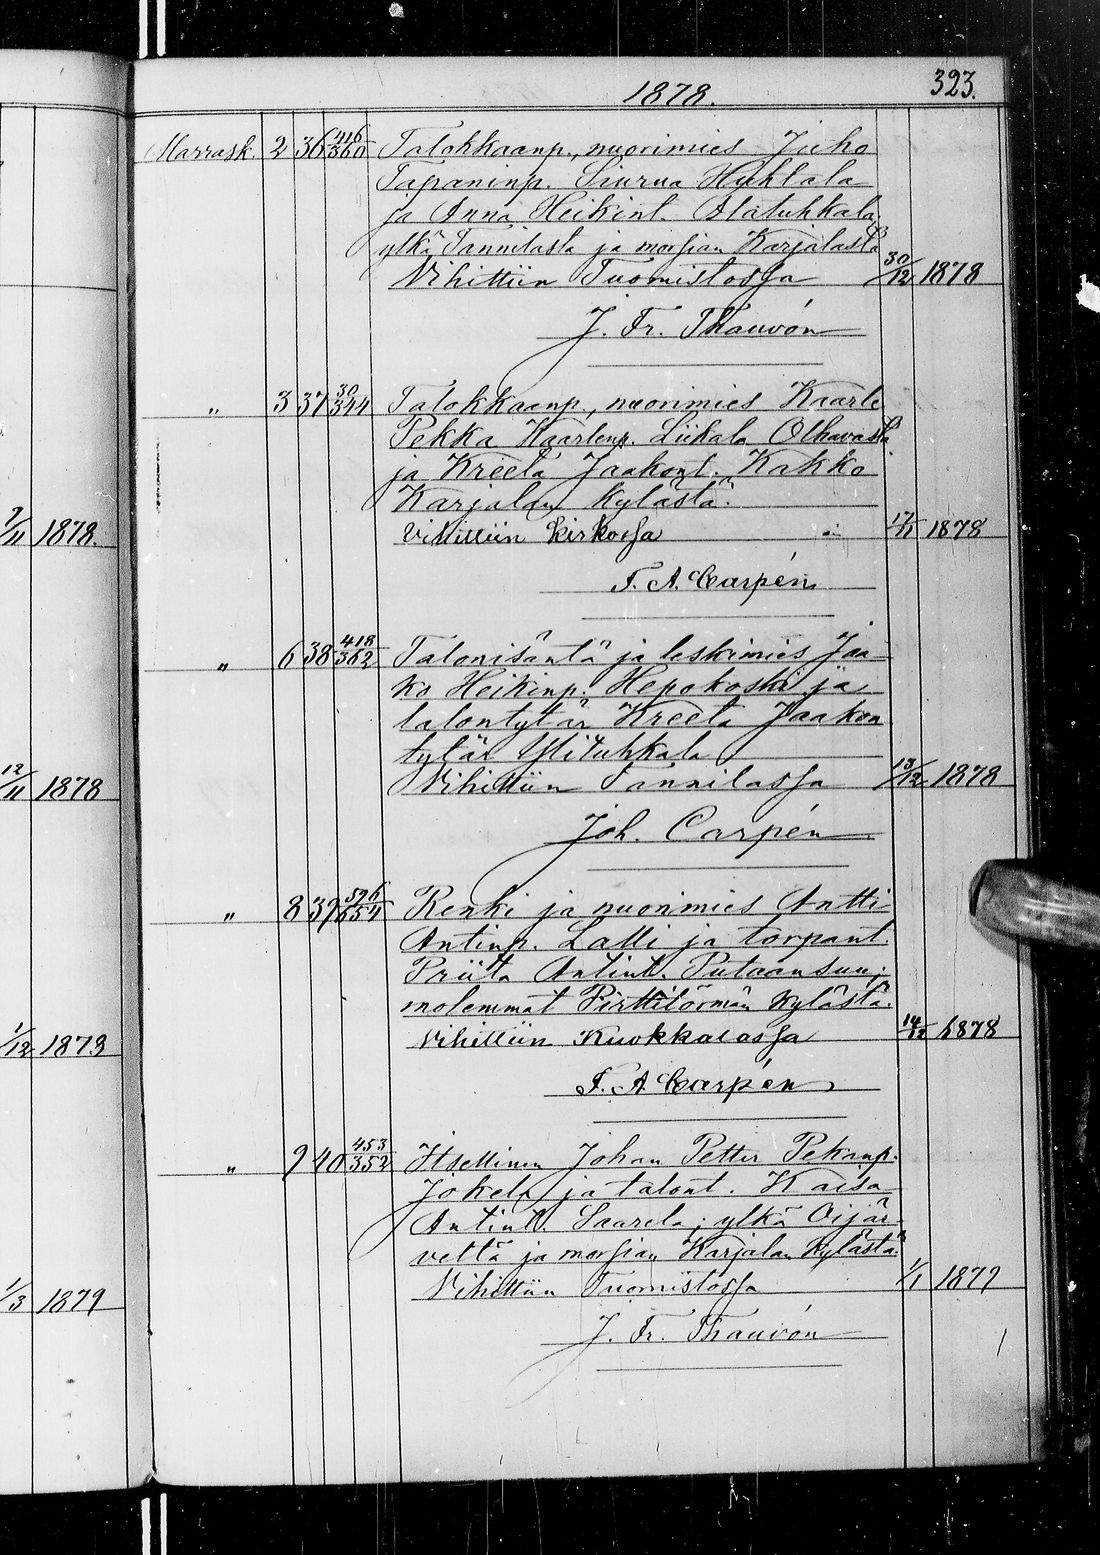 323.
1878.
Marrask. 2 36 416/360 Talokkaanp., nuorimies Juho
Tapaninp. Siurua Huhtala
ja Anna Heikint. Alatuhkala
ylkä Tannilasta ja morsian Karjalasta
Vihittiin Tuomistossa 30/12 1878
J. Fr. Thauvón
" 3 37 30/344 Talokkaanp., nuorimies Kaarle
Pekka Kaarlenp. Liikala Olhavasta
ja Kreeta Jaakont. Kakko
Karjalan kylästä.
Vihittiin kirkossa 17/11 1878
F. A. Carpén
" 6 38 418/362 Talonisäntä ja leskimies Jaa-
ko Heikinp. Hepokoski ja
talontytär Kreeta Jaakon
tytär Ylituhkala
Vihittiin Tannilassa 13/12 1878
Joh. Carpén
" 8 39 596/654 Renki ja nuorimies Antti
Antinp. Lalli ja torpant.
Priita Antint. Putaansuu;
molemmat Pirttitörmän kylästä.
Vihittiin Kuokkalassa 14/12 1878
F. A. Carpén
" 9 40 453/352 Itsellinen Johan Petter Pekanp.
Jokela ja talont. Kaisa
Antint. Saarela; ylkä Oijär-
veltä ja morsian Karjalan kylästä.
Vihittiin Tuomistossa 1/1 1879
J. Fr. Thauvón
7/11 1878.
12/11 1878
1/12 1873
1/3 1879